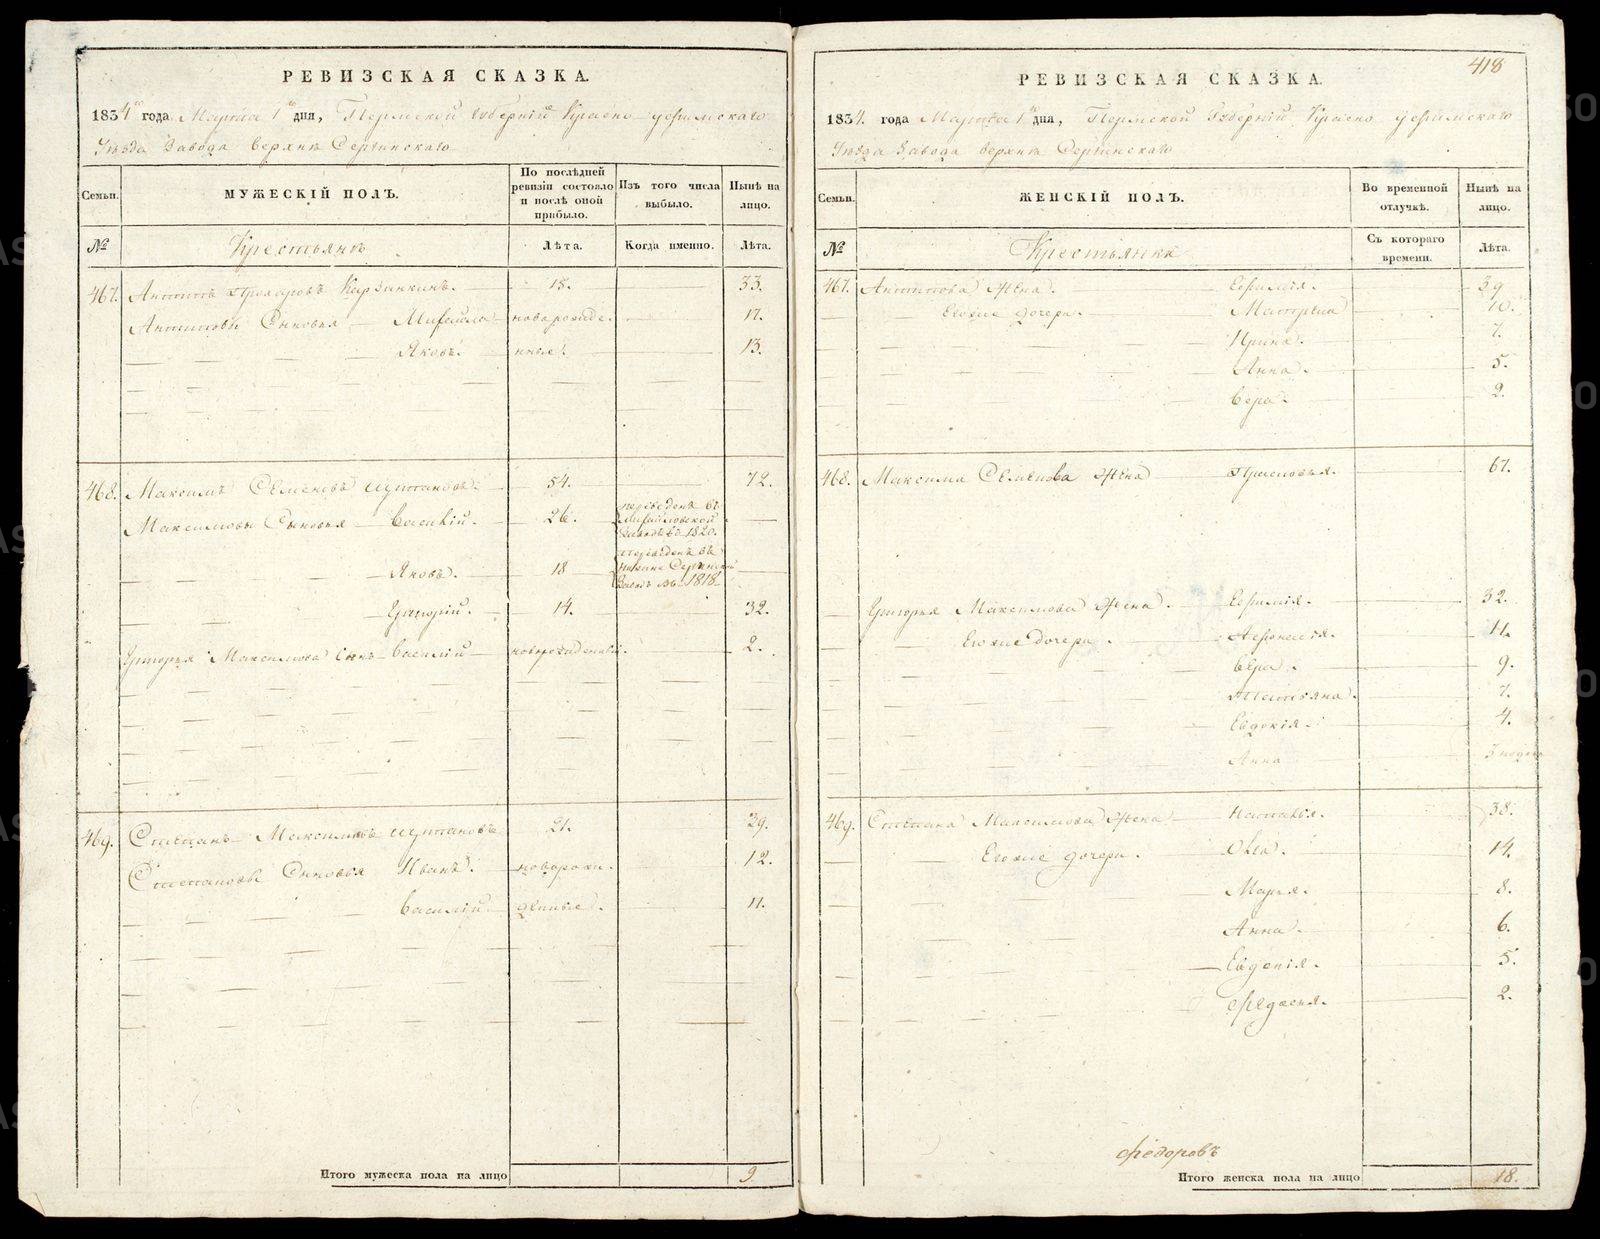 РЕВИЗСКАЯ СКАЗКА.
1834го года Марта 1го дня, Пермской Губерніи Красно-уфимскаго
Уѣзда Завода Верхне Сергинскаго
Семьи.
МУЖЕСКІЙ ПОЛЪ.
По послѣдней ревизіи состояло и послѣ оной прибыло.
Изъ того числа выбыло.
Нынѣ на лицо.
№
Крестьянъ
Лѣта.
Когда именно.
Лѣта.
467. Антипъ Прохаровъ 15. 33.
Антиповы Сыновья Михайла новорожде- 17.
Яковъ. нные. 13.
468. Максимъ Семеновъ 54. 72.
Максимовы Сыновья Василій. 26. переведенъ въ Михайловской заводъ въ 1820.
Яковъ. 18 переведенъ въ Нижне Сергинской заводъ въ 1818
Григорій. 14. 32.
Григорья Максимова Сынъ Василій новорожденный. 2.
469. Степанъ Максимовъ 21. 29.
Степановы Сыновья Иванъ. новорож- 12.
Василій денные. 11.
Итого мужеска пола на лицо 9
418
РЕВИЗСКАЯ СКАЗКА.
1834. года Марта 1го дня, Пермской Губерніи Красно уфимскаго
Уѣзда Завода Верхне Сергинскаго
Семьи.
ЖЕНСКІЙ ПОЛЪ.
Во временной отлучкѣ.
Нынѣ на лицо.
№
Крестьянки
Съ котораго времени.
Лѣта.
467. Антипова Жена. Ефимія. 39
Егожие дочери. Матрена 10.
Ирина. 7.
Анна. 5.
Вера. 2.
468. Максима Семенова Жена Прасковья. 67.
Григорья Максимова Жена. Ефимія. 32.
Егожие дочери. Афонасія. 11.
Вѣра. 9.
Татьяна. 7.
Евдокія. 4.
Анна 3 недели
469. Степана Максимова Жена Наталья. 38.
Егожие дочери. 14.
Марья. 8.
Анна. 6.
Евгенія. 5.
Федосья. 2.
Федоровъ
Итого женска пола на лицо 18.